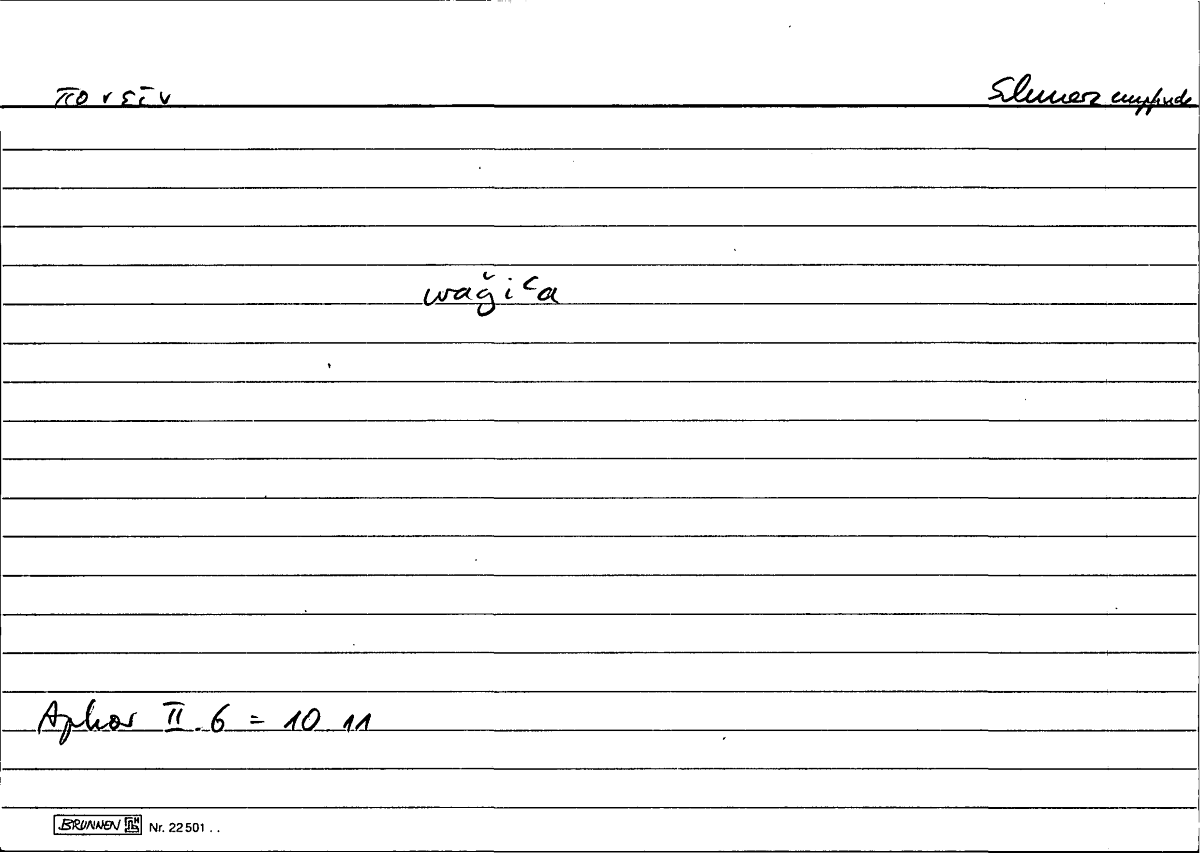 πονεῖν Schmerz empfinde
waǧiʿa
Aphor II.6 = 10.11
BRUNNEN Nr. 22501 . .